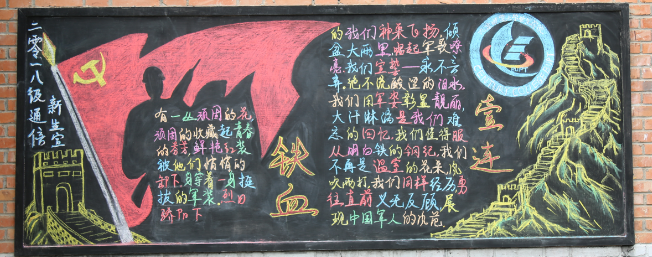 二零一八级通信
新生军
有一丛顽固的花
顽固的收藏起青春
的芳芳鲜艳红装
被他们悄悄的
卸下身穿着一身挺
拔的军装烈日
骄阳下
铁血
的我们神采飞扬,倾
盆大雨里,唱起军歌嘹
亮,我们宣誓——永不言
弃,绝不流酸涩的泪水,
我们用军姿彰显靓丽,
大汗淋漓是我们难
忘的回忆,我们懂得服
从明白铁的纲纪,我们
不再是温室的花朵,风
吹雨打,我们同样经历勇
往直前 义无反顾 展
现中国军人的风范
壹连